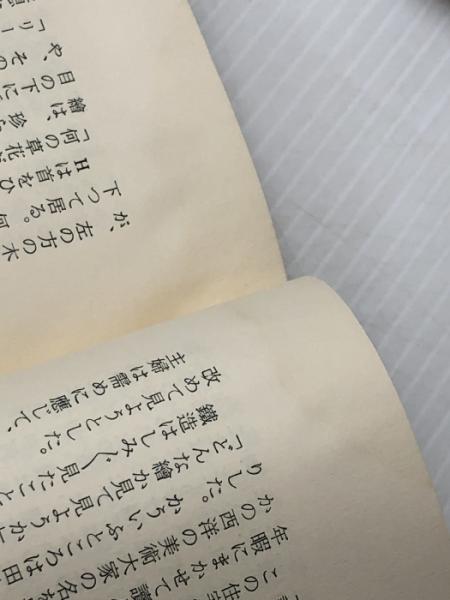 この住宅
年暇にまかせて讀
かの西洋の美術大家の名
りした。かういふところは田
「どんな繪か見て見ようか
鐵造はしみ〲見たこと
改めて見ようとした。
主婦は需めに應じて、
が、左の方の木
下つて居る。何
Hは首をひ
「何の草花が
繪は、珍ら
目の下に
や、その
「リー